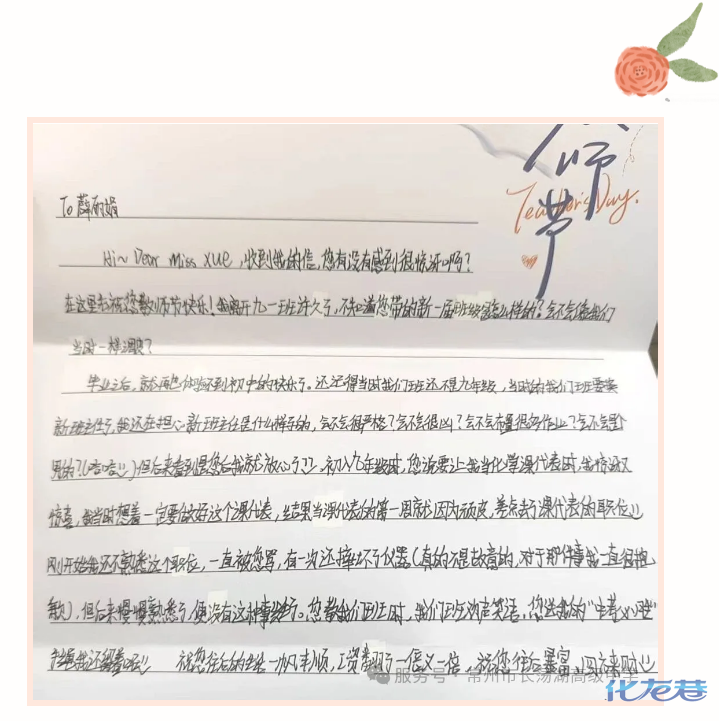 师
节
Teacher's Day.
To 薛丽娟
Hi~ Dear Miss Xue，收到我的信，您有没有感到很惊讶啊？
在这里先祝您教师节快乐！我离开九一班许久了，不知道您带的新一届班级是怎么样的？会不会像我们
当时一样调皮？
毕业之后，就再也体验不到初中的快乐了。还记得当时我们班还不是九年级，当时给我们班要换
新班主任，我还在担心新班主任是什么样子的，会不会很严格？会不会很凶？会不会布置很多作业？会不会是个
男的？（哈哈）但后来看到是您后我就放心了，初入九年级时，您说要让我当化学课代表时，我惊讶又
惊喜，我当时想着一定要做好这个课代表，结果当课代表的第一周就因为顽皮，差点丢了课代表的职位
刚开始我还不熟悉这个职位，一直被您骂，有一次还摔坏了仪器（真的不是故意的，对于那件事我一直很抱
歉），但后来慢慢熟悉了，便没有这种事发生了。您带我们班时，我们班欢声笑语，您送我的“中考必胜”
我还留着呢 祝您往后的生活一帆风顺，工资翻了一倍又一倍，祝您往后暴富，四方来财
服务号 · 常州市长荡湖高级中学
化龙巷